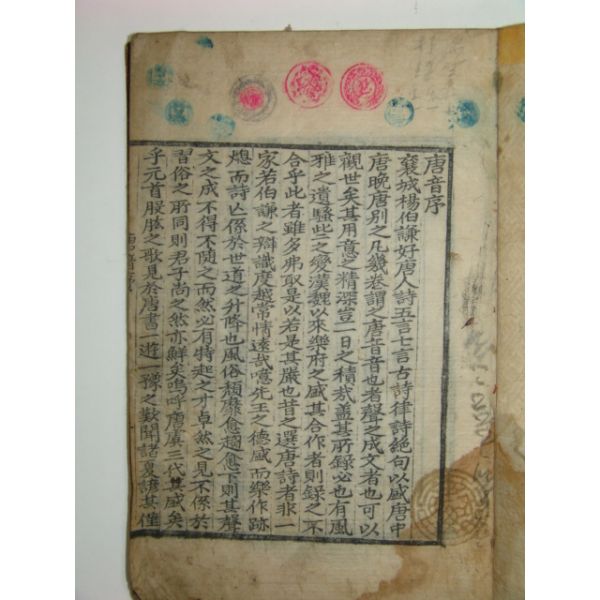 唐音序
襄城楊伯謙好唐人詩五言七言古詩律詩絶句以盛唐中
唐晩唐別之凡幾卷謂之唐音音也者聲之成文者也可以
觀世矣其用意之精深豈一日之積哉盖其所録必也有風
雅之遺騷些之變漢魏以來樂府之盛其合作者則録之不
合乎此者雖多弗取是以若是其嚴也昔之選唐詩者非一
家若伯謙之辯識度越常情遠哉噫先王之德盛而樂作跡
熄而詩亡係於世道之升降也風俗頽靡愈趨愈下則其聲
文之成不得不隨之而然必有特起之才卓然之見不係於
習俗之所同則君子尚之然亦鮮矣嗚呼唐虞三代其盛矣
乎元首股肱之歌見於唐書一遊一豫之歎聞諸夏諺其僅